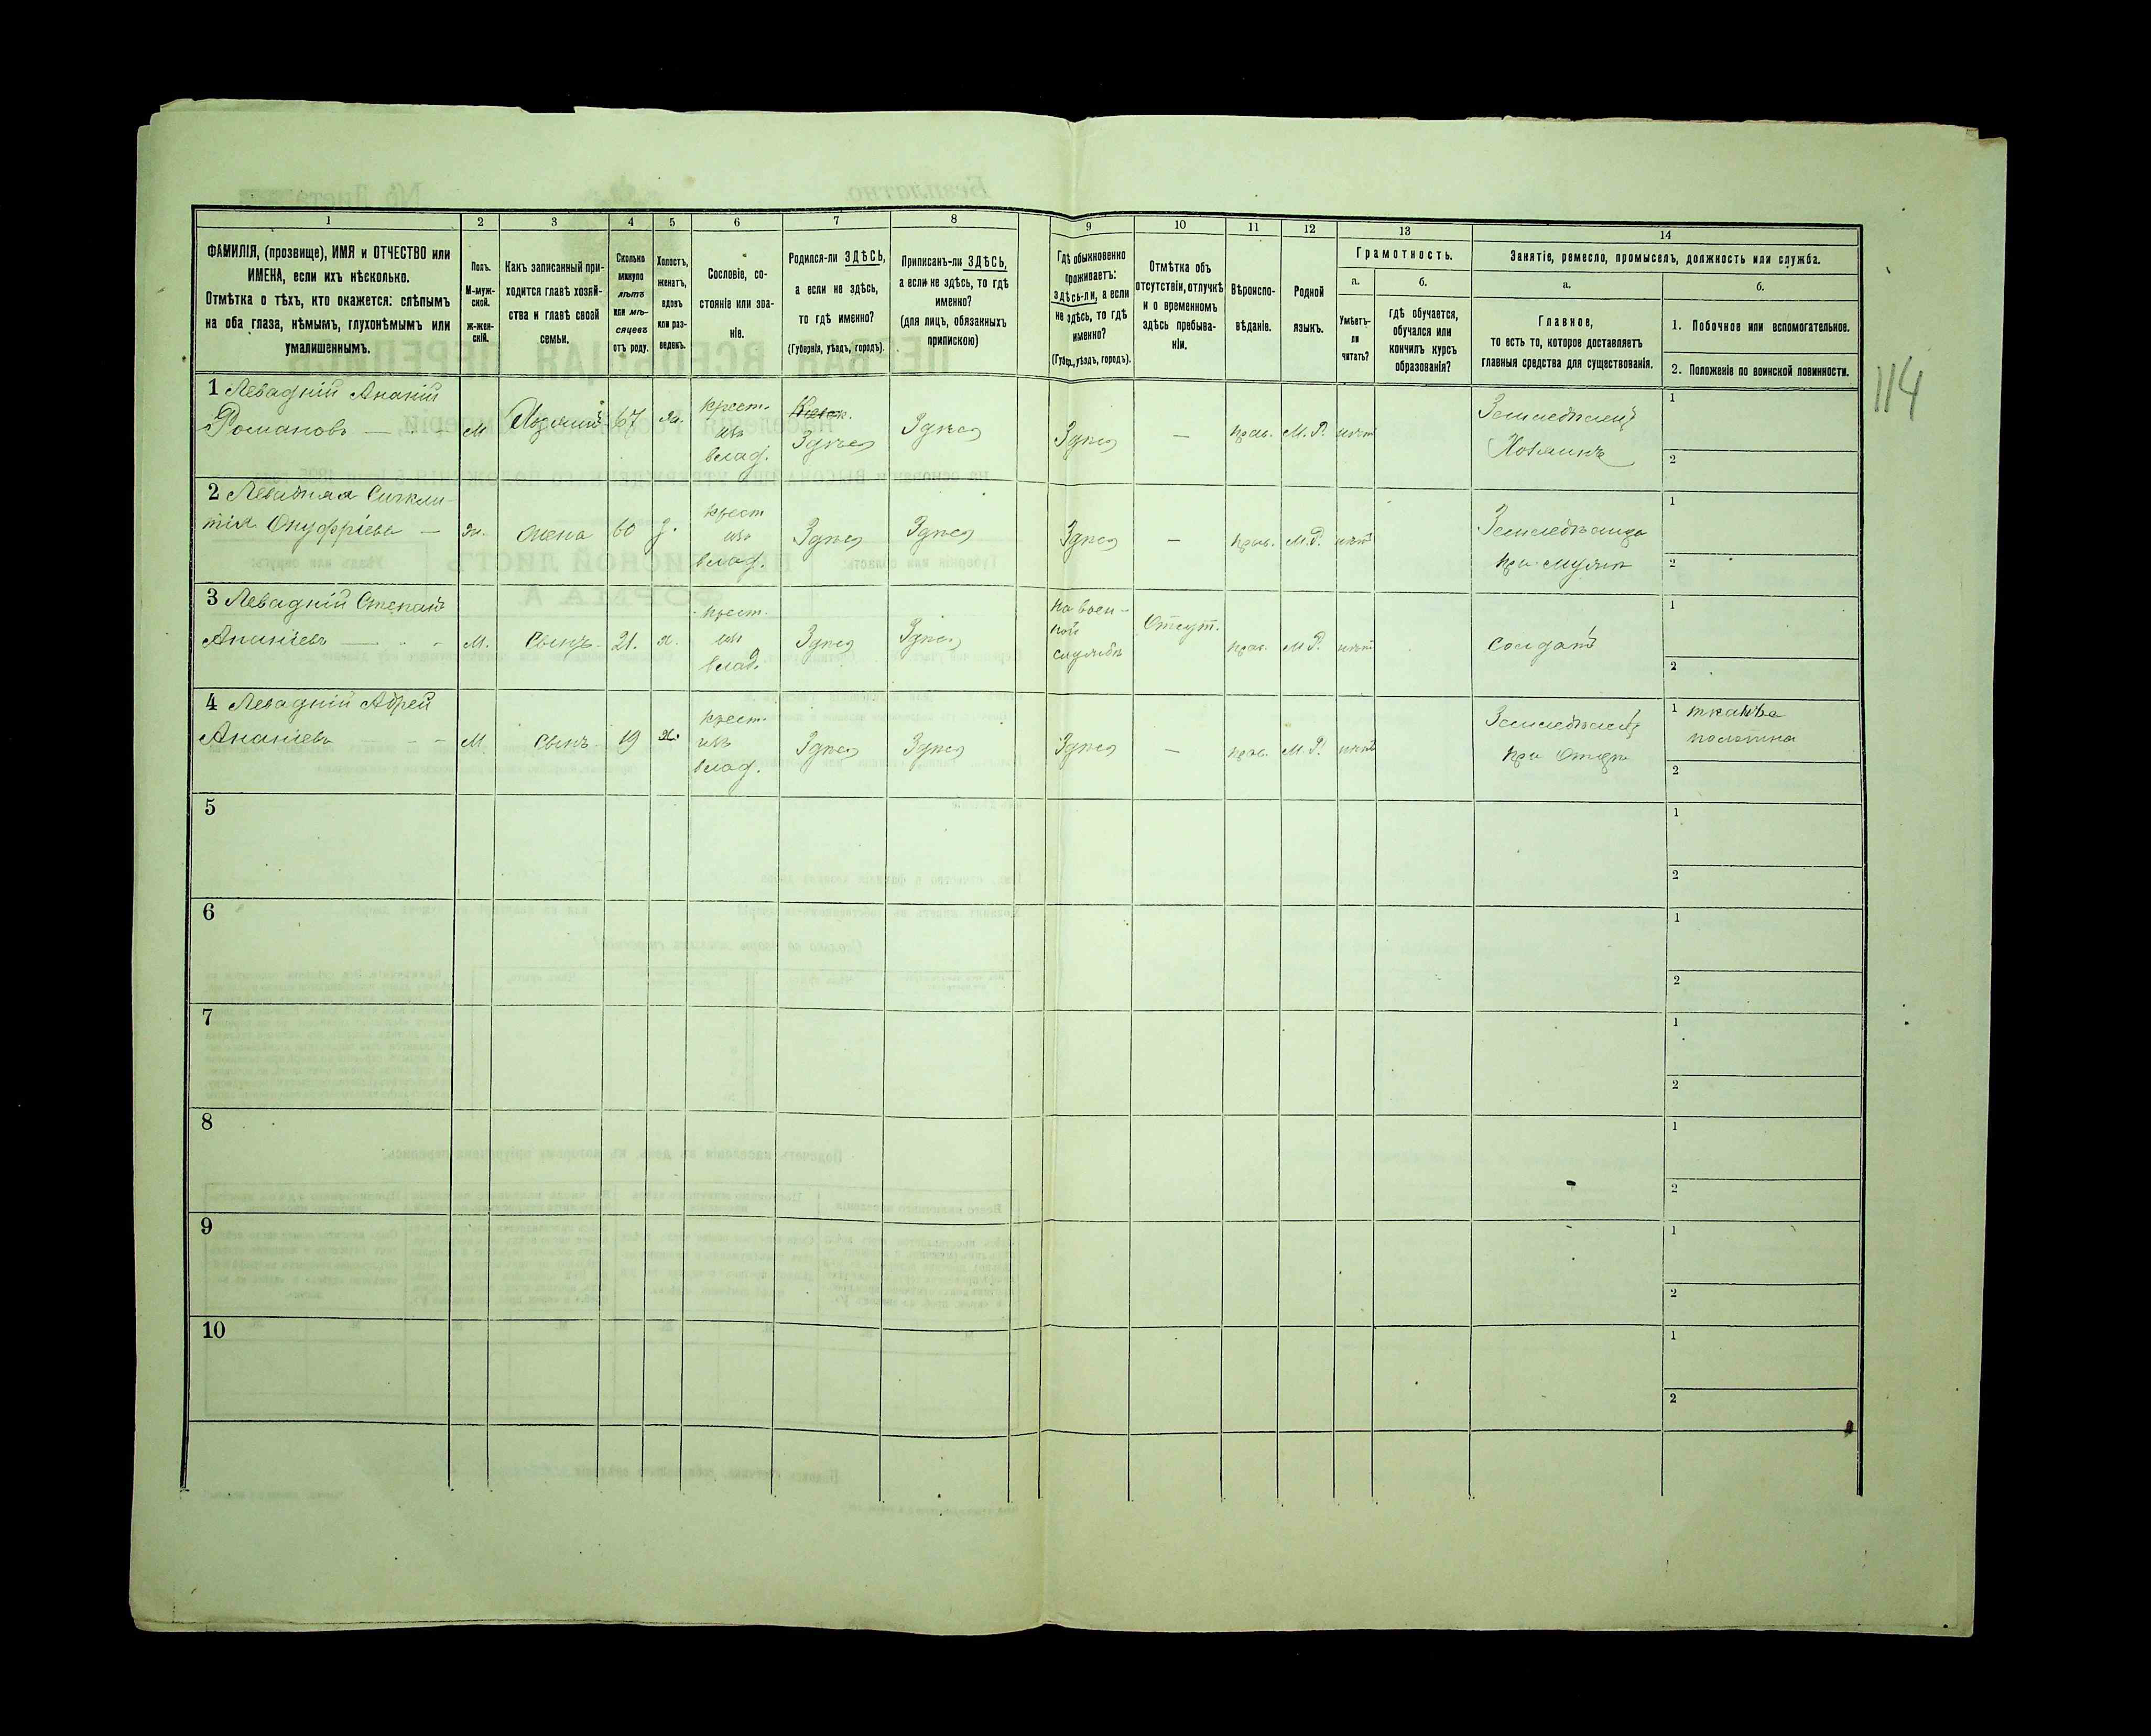 1
2
3
4
5
6
7
8
9
10
11
12
13
14
ФАМИЛІЯ, (прозвище), ИМЯ и ОТЧЕСТВО или
ИМЕНА, если ихъ нѣсколько.
Отмѣтка о тѣхъ, кто окажется: слѣпымъ
на оба глаза, нѣмымъ, глухонѣмымъ или
умалишеннымъ.
Полъ.
М-муж-
ской.
ж-жен-
скій.
Какъ записанный при-
ходится главѣ хозяй-
ства и главѣ своей
семьи.
Сколько
минуло
лѣтъ
или мѣ-
сяцевъ
отъ роду.
Холостъ,
женатъ,
вдовъ
или раз-
веденъ.
Сословіе, со-
стояніе или зва-
ніе.
Родился-ли ЗДѢСЬ,
а если не здѣсь,
то гдѣ именно?
(Губернія, уѣздъ, городъ).
Приписанъ-ли ЗДѢСЬ,
а если не здѣсь, то гдѣ
именно?
(для лицъ, обязанныхъ
припискою)
Гдѣ обыкновенно
проживаетъ:
здѣсь-ли, а если
не здѣсь, то гдѣ
именно?
(Губер., уѣздъ, городъ).
Отмѣтка объ
отсутствіи, отлучкѣ
и о временномъ
здѣсь пребыва-
ніи.
Вѣроиспо-
вѣданіе.
Родной
языкъ.
Грамотность.
а.
б.
Умѣетъ-
ли
читать?
гдѣ обучается,
обучался или
кончилъ курсъ
образованія?
Занятіе, ремесло, промыселъ, должность или служба.
а.
б.
Главное,
то есть то, которое доставляетъ
главныя средства для существованія.
1. Побочное или вспомогательное.
2. Положеніе по воинской повинности.
1 Левадній Ананій
Романовъ
М
Хозяинъ
67
Жн.
крест.
изъ
влад.
Здѣсь
Здѣсь
Здѣсь
—
прав.
М. Р.
нѣтъ
Земледѣлецъ
Хозяинъ
1
2
2 Левадняя Сигкли-
тія Онуфріева —
Ж.
жена
60
З.
крест
изъ
влад.
Здѣсь
Здѣсь
Здѣсь
—
прав.
М.Р.
нѣтъ
Земледѣлица
при мужѣ
1
2
3 Левадній Степанъ
Ананіевъ
М.
Сынъ
21.
Х.
крест.
изъ
влад.
Здѣсь
Здѣсь
На воен-
ной
службѣ
Отсут.
прав.
М Р.
нѣтъ
Солдатъ
1
2
4 Левадній Адрей
Ананіевъ
М.
Сынъ
19
Х.
крест.
изъ
влад.
Здѣсь
Здѣсь
Здѣсь
—
прав.
М Р.
нѣтъ
Земледѣлецъ
при Отцѣ
1 тканье
полотна
2
5
1
2
6
1
2
7
1
2
8
1
2
9
1
2
10
1
2
114